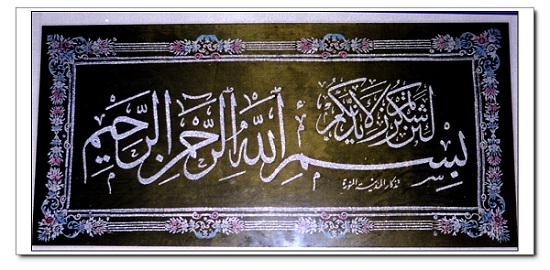 لئن شكرتم لأزيدنكم
بسم الله الرحمن الرحيم
تذكار المدينة المنورة